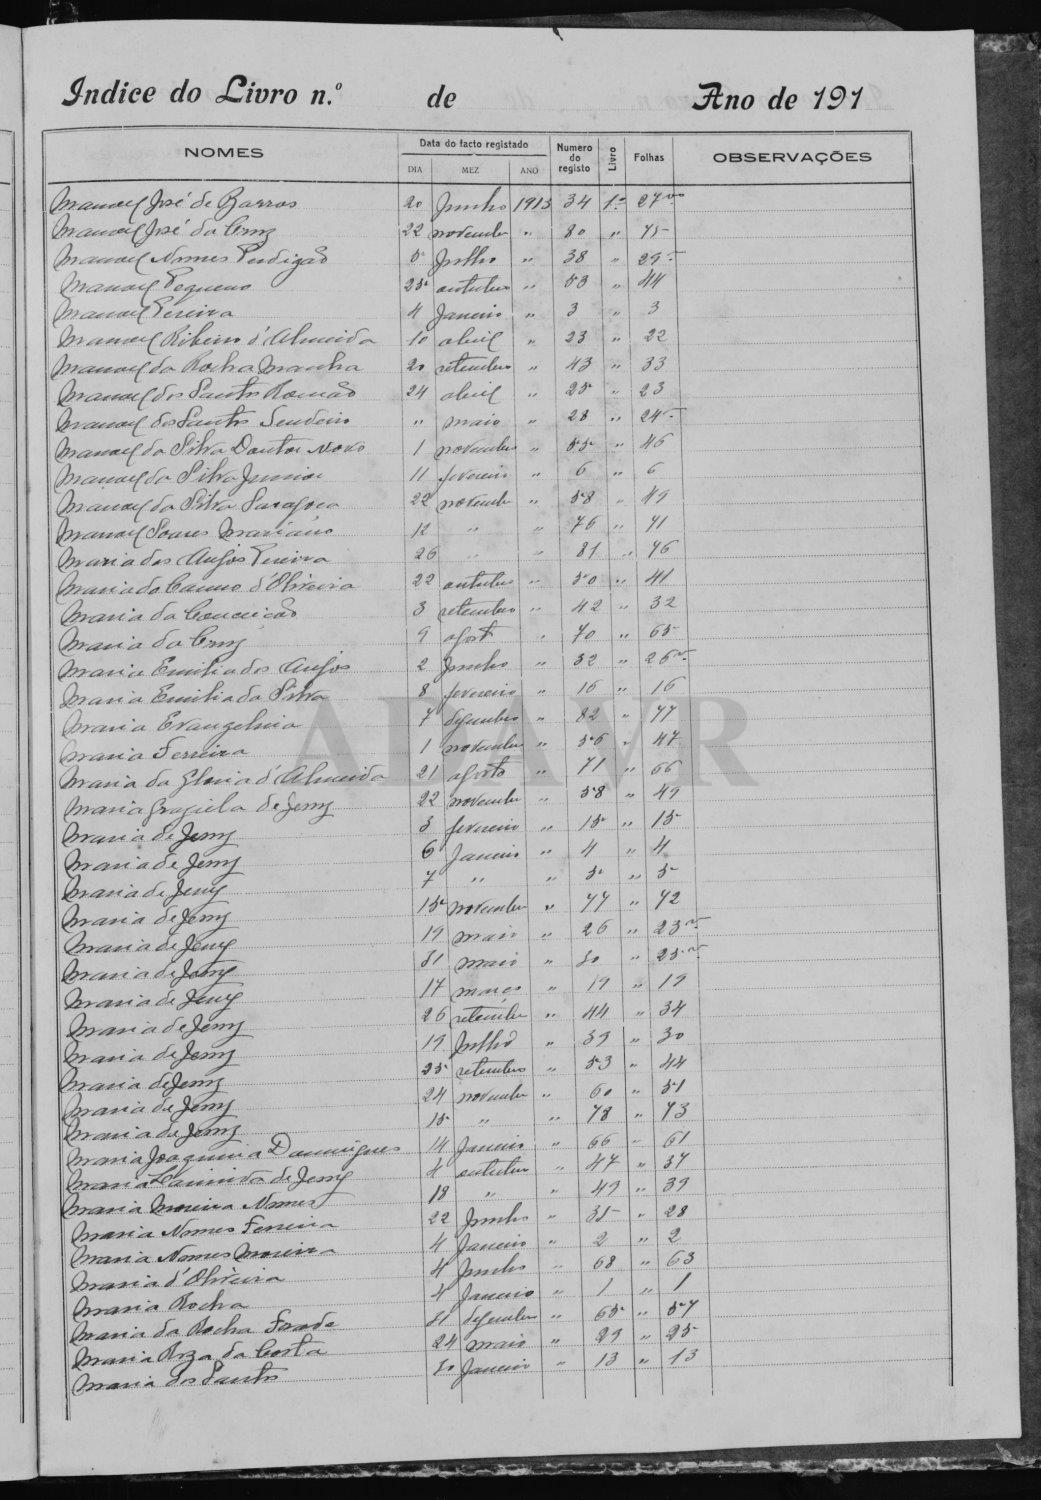 Indice do Livro n.º de Ano de 191
NOMES Data do facto registado Numero do registo Livro Folhas OBSERVAÇÕES
DIA MEZ ANO
Manoel José de Barros 20 Junho 1913 34 1.º 27vo
Manoel José da Cruz 22 novembro " 80 " 75
Manoel Nunes Perdigão 5 Julho " 38 " 29
Manoel Pequeno 25 outubro " 53 " 44
Manoel Pereira 4 Janeiro " 3 " 3
Manoel Ribeiro d'Almeida 10 abril " 23 " 22
Manoel da Rocha 20 setembro " 43 " 33
Manoel dos Santos Romão 24 abril " 25 " 23
Manoel dos Santos Sendeiro " maio " 28 " 24
Manoel da Silva Novo 1 novembro " 55 " 46
Manoel da Silva Junior 11 fevereiro " 6 " 6
Manoel da Silva 22 novembro " 58 " 49
Manoel Soares Mariano 12 " " 76 " 71
Maria dos Anjos Pereira 26 " " 81 " 76
Maria do Carmo d'Oliveira 22 outubro " 50 " 41
Maria da Conceição 3 setembro " 42 " 32
Maria da Cruz 9 agosto " 70 " 65
Maria Emilia dos Anjos 2 Junho " 32 " 26v
Maria Emilia da Silva 8 fevereiro " 16 " 16
Maria Evangelina 7 dezembro " 82 " 77
Maria Ferreira 1 novembro " 56 " 47
Maria da Gloria d'Almeida 21 agosto " 71 " 66
Maria Graziela de Jesus 22 novembro " 58 " 49
Maria de Jesus 3 fevereiro " 15 " 15
Maria de Jesus 6 Janeiro " 4 " 4
Maria de Jesus 7 " " 5 " 5
Maria de Jesus 15 novembro " 77 " 72
Maria de Jesus 19 maio " 26 " 23v
Maria de Jesus 31 maio " 30 " 25v
Maria de Jesus 17 março " 19 " 19
Maria de Jesus 26 setembro " 44 " 34
Maria de Jesus 19 Julho " 39 " 30
Maria de Jesus 25 setembro " 53 " 44
Maria de Jesus 24 novembro " 60 " 51
Maria de Jesus 15 " " 78 " 73
Maria Joaquina Domingues 14 Janeiro " 66 " 61
Maria de Jesus 4 outubro " 47 " 37
Maria Moreira Nunes 18 " " 49 " 39
Maria Nunes Ferreira 22 Junho " 35 " 28
Maria Nunes Moreira 4 Janeiro " 2 " 2
Maria d'Oliveira 4 Junho " 68 " 63
Maria Rocha 4 Janeiro " 1 " 1
Maria da Rocha 31 dezembro " 65 " 57
Maria Roza da Costa 24 maio " 29 " 25
Maria dos Santos 30 Janeiro " 13 " 13
ADAVR